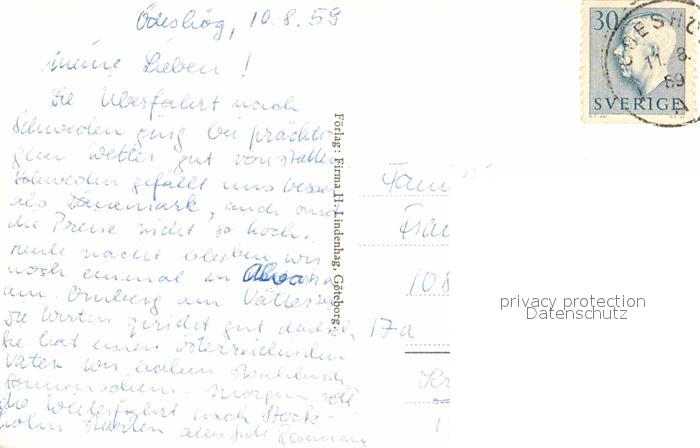 Ödeshög, 10.8.59
Meine Lieben!
Die Überfahrt nach
Schweden ging bei prächti-
gem Wetter gut vonstatten
Schweden gefällt uns besser
als Dänemark, auch sind
die Preise nicht so hoch.
Heute nacht bleiben wir
noch einmal in
am Omberg am Vättersee
Die Wirtin spricht gut deutsch
Sie hat einen österreichischen
Vater. Wir haben strahlenden
Sonnenschein. Morgen soll
die Weiterfahrt nach Stock-
holm starten. alles gute Rosemarie
Förlag: Firma H. Lindenhag, Göteborg.
30
SVERIGE
ÖDESHÖG
11. 8.
59
Fam
108
17a
privacy protection
Datenschutz